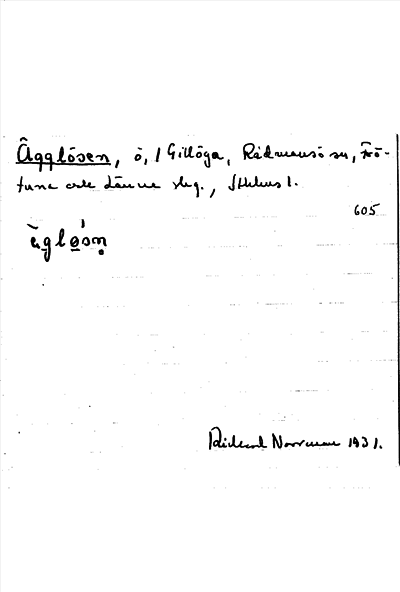 Ägglösen, ö, i Gillöga, Rådmansö sn, Frö-
tuna och Länna skg., Sthlms l.
605
Rickard Norrman 1931.